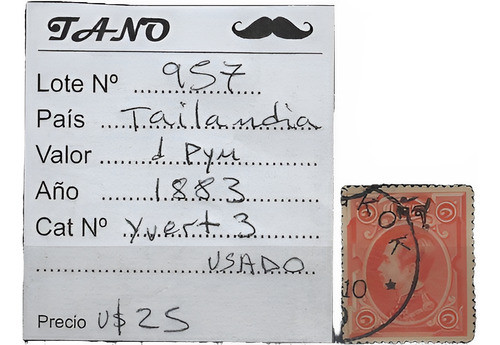 TANO
Lote Nº 957
País Tailandia
Valor 1 Pyu
Año 1883
Cat Nº Yvert 3
USADO
Precio U$ 25
10